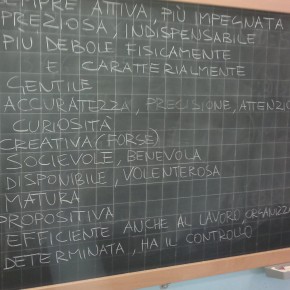 SEMPRE ATTIVA, PIÙ IMPEGNATA
PREZIOSA, INDISPENSABILE
PIÙ DEBOLE FISICAMENTE
E CARATTERIALMENTE
GENTILE
ACCURATEZZA, PRECISIONE, ATTENZIO
CURIOSITÀ
CREATIVA (FORSE)
SOCIEVOLE, BENEVOLA
DISPONIBILE, VOLENTEROSA
MATURA
PROPOSITIVA
EFFICIENTE ANCHE AL LAVORO, ORGANIZZA
DETERMINATA, HA IL CONTROLLO